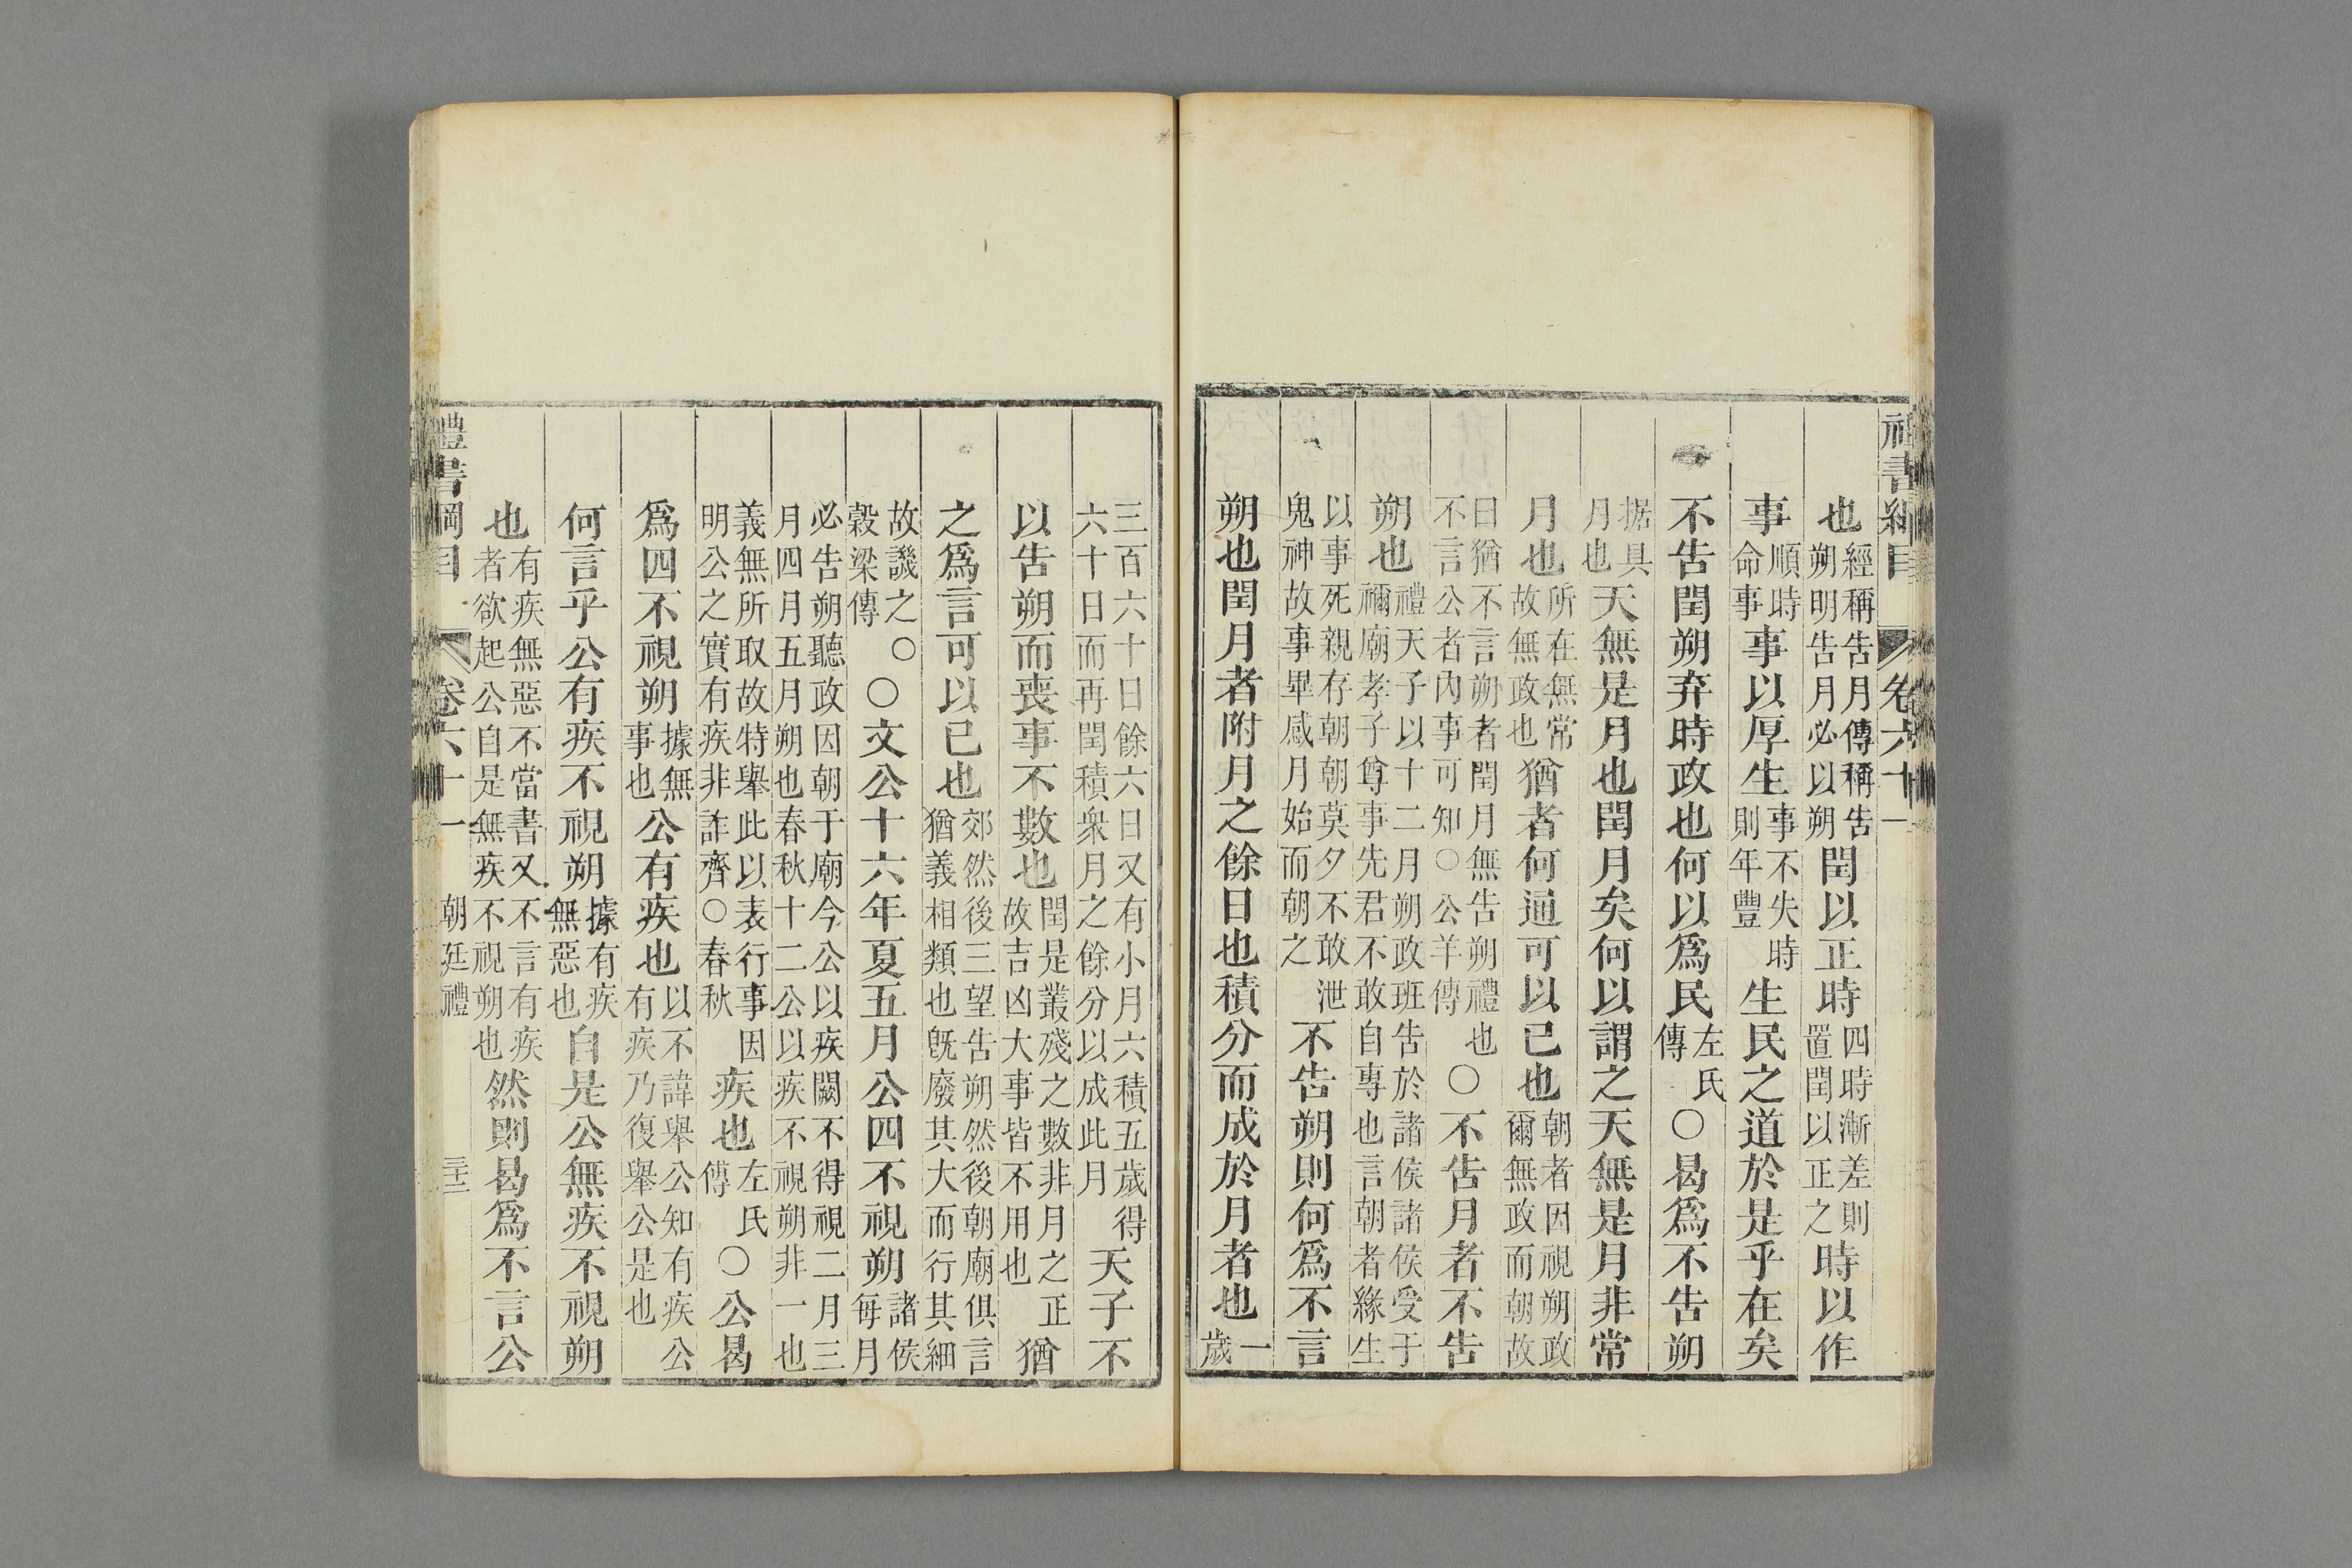 禮書綱目 卷六十一
也經稱告月傳稱告朔明告月必以朔閏以正時四時漸差則置閏以正之時以作
事順時命事事以厚生事不失時則年豐生民之道於是乎在矣
不告閏朔弃時政也何以爲民左氏傳○曷爲不告朔
据具月也天無是月也閏月矣何以謂之天無是月非常
月也所在無常故無政也猶者何通可以已也朝者因視朔政爾無政而朝故
曰猶不言朔者閏月無告朔禮也不言公者內事可知○公羊傳○不告月者不告
朔也禮天子以十二月朔政班告於諸侯諸侯受于禰廟孝子尊事先君不敢自專也言朝者緣生
以事死親存朝朝莫夕不敢泄鬼神故事畢感月始而朝之不告朔則何爲不言
朔也閏月者附月之餘日也積分而成於月者也一歲
三百六十日餘六日又有小月六積五歲得六十日而再閏積衆月之餘分以成此月天子不
以告朔而喪事不數也閏是叢殘之數非月之正故吉凶大事皆不用也猶
之爲言可以已也郊然後三望告朔然後朝廟俱言猶義相類也旣廢其大而行其細
故譏之○穀梁傳○文公十六年夏五月公四不視朔諸侯每月
必告朔聽政因朝于廟今公以疾闕不得視二月三月四月五月朔也春秋十二公以疾不視朔非一也
義無所取故特舉此以表行事因明公之實有疾非詐齊○春秋疾也左氏傳○公曷
爲四不視朔據無事也公有疾也以不諱舉公知有疾公有疾乃復舉公是也
何言乎公有疾不視朔據有疾無惡也自是公無疾不視朔
也有疾無惡不當書又不言有疾者欲起公自是無疾不視朔也然則曷爲不言公
禮書綱目 卷六十一 朝廷禮 三十二